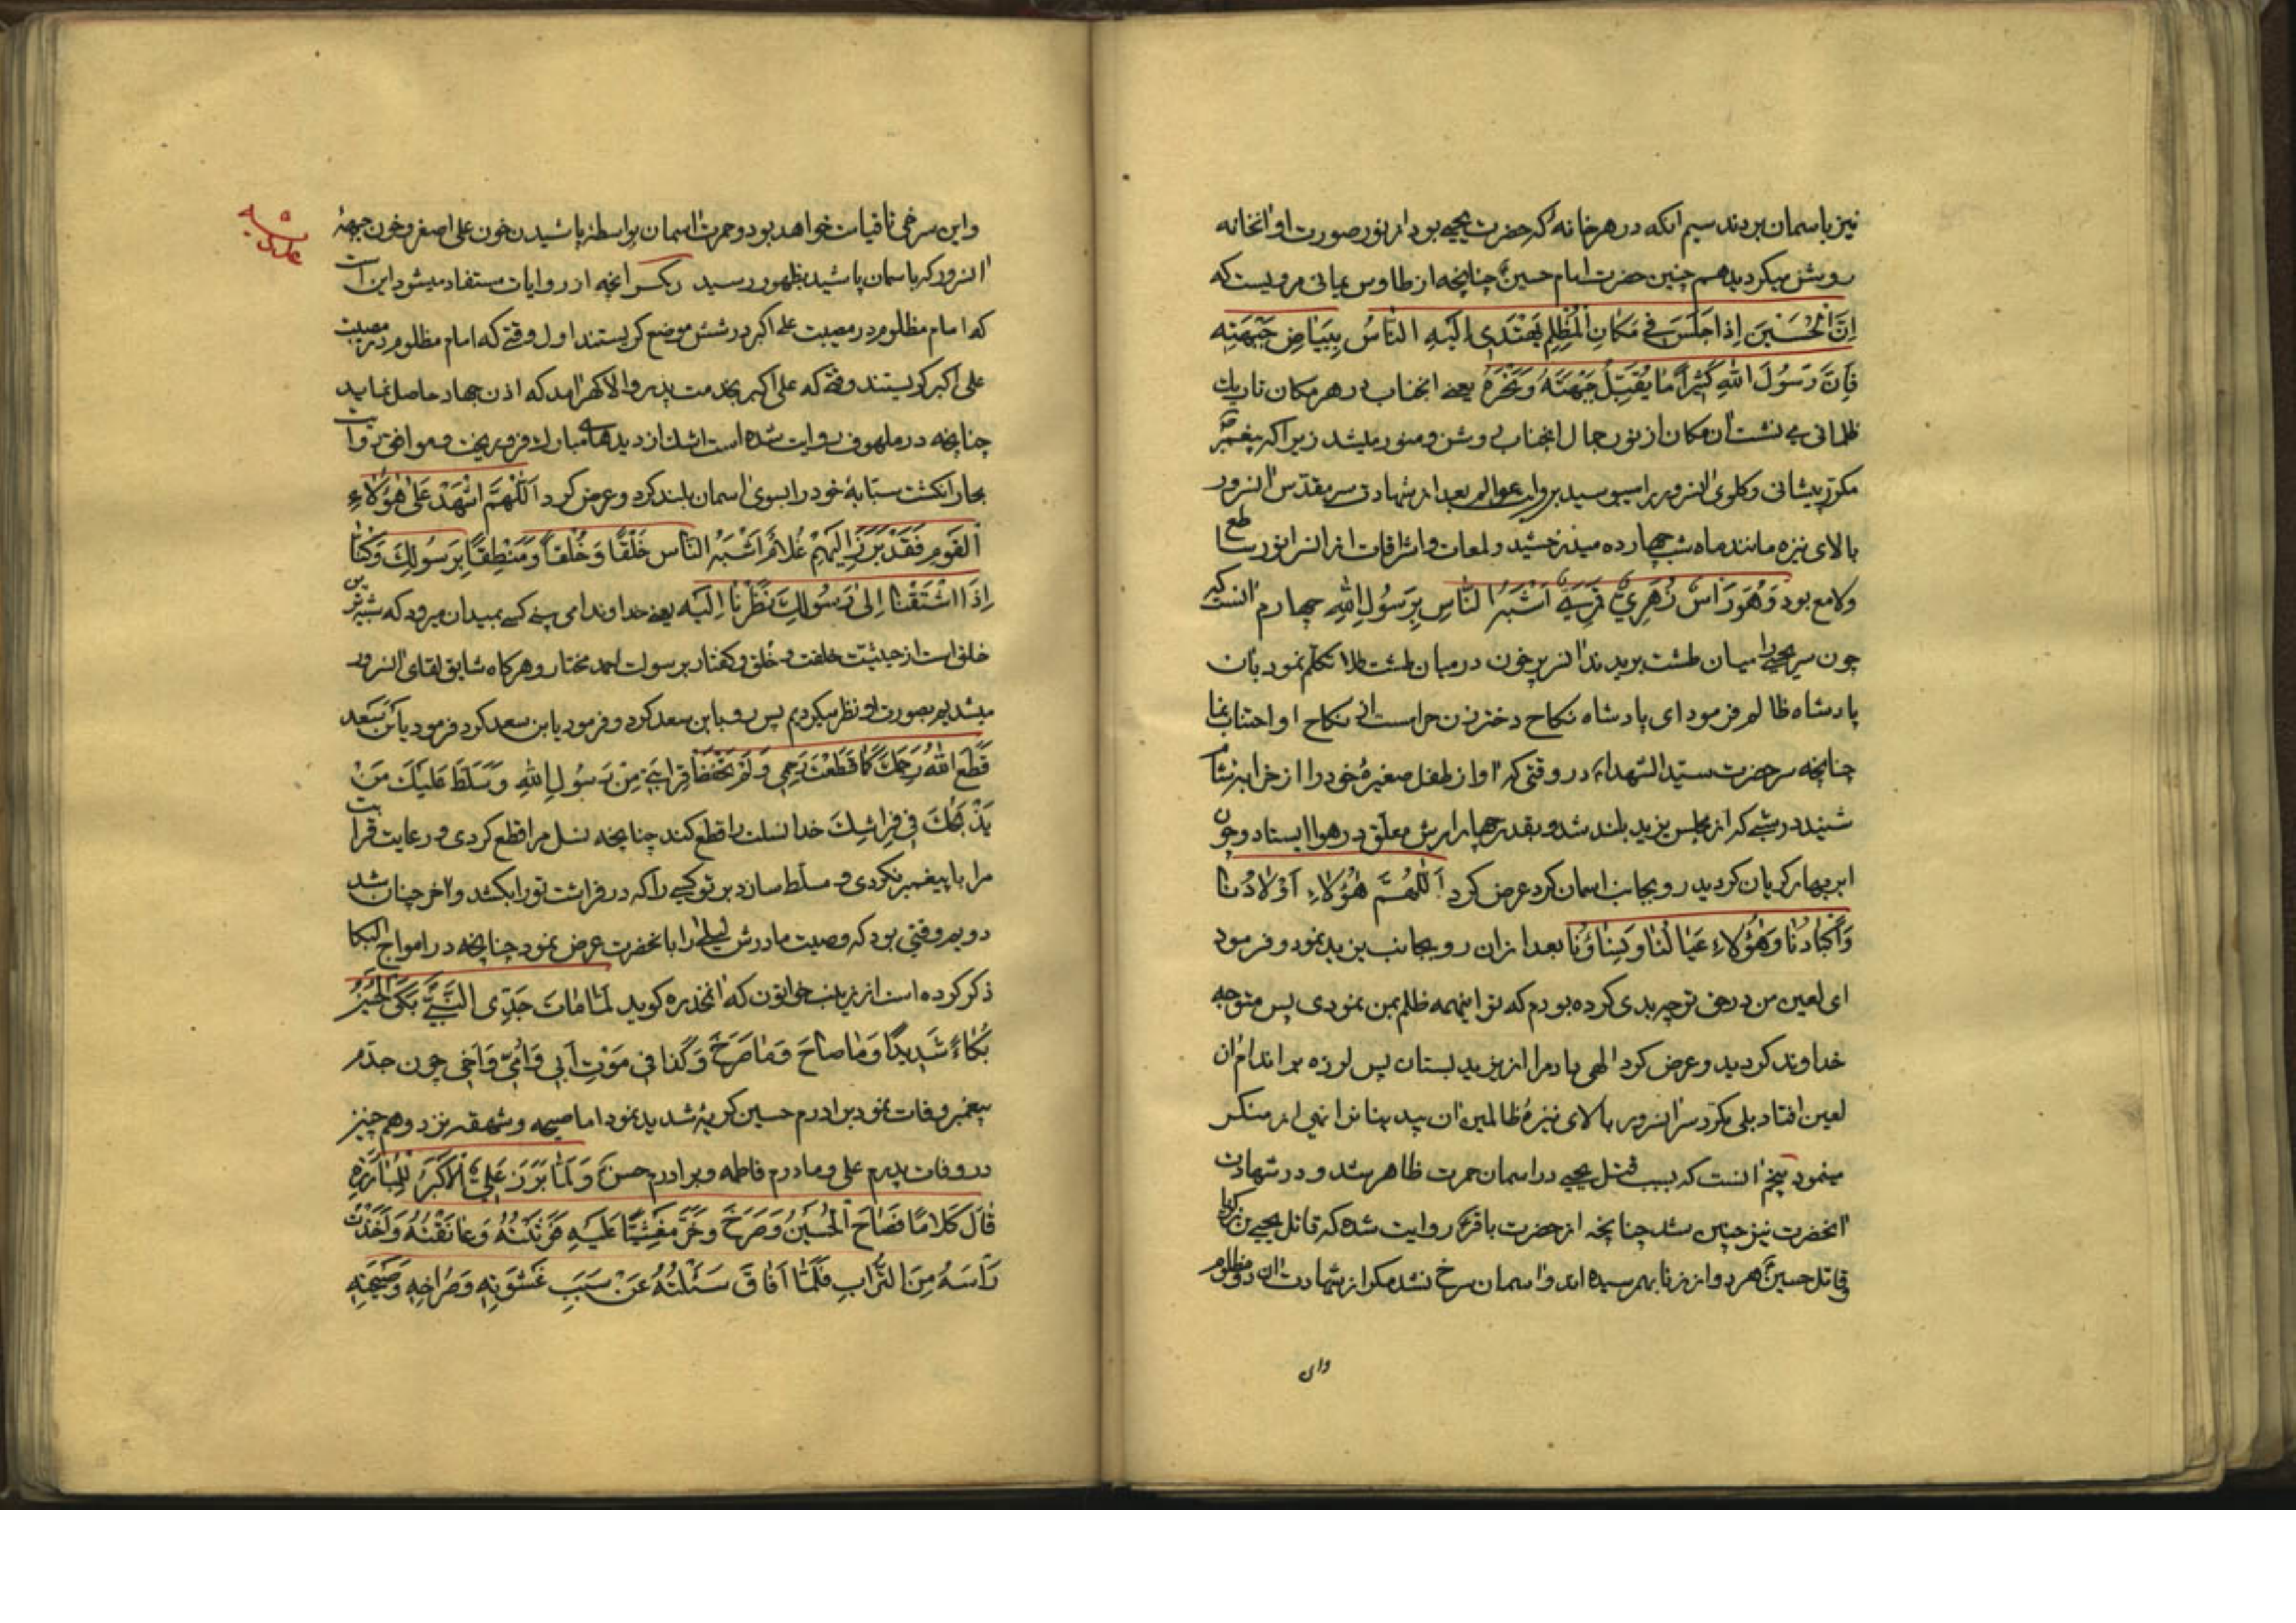 نیز باسمان بردند سیم انکه در هر خانه که حضرت یحیی بود از نور صورت او انخانه
روشن میکردید همچنین حضرت امام حسین چنانچه از طاوس یمانی مرویست که
اِنَّ الْحُسَیْنَ اِذا جَلَسَ فی مَکانِ الْمُظْلِمِ یَهْتَدی اِلَیْهِ النّاسُ بِبَیاضِ جَبْهَتِهِ
فَاِنَّ رَسُولَ اللهِ کَثیراً ما یُقَبِّلُ جَبْهَتَهُ وَ نَحْرَهُ یعنی انجناب در هر مکان تاریک
ظلمانی می نشست ان مکان از نور جمال انجناب روشن و منور میشد زیرا که پیغمبر
مکرر پیشانی و کلوی انسرور را میبوسید بروایت عوالم بعد از شهادت سر مقدس انسرور
بالای نیزه مانند ماه شب چهارده میدرخشید و لمعات و اشراقات از ان سر انور ساطع
و لامع بود وَ هُوَ رَاْسٌ زُهَرِیٌّ قَمَرِیٌّ اَشْبَهُ النّاسِ بِرَسُولِ اللهِ چهارم انست که
چون سر یحیی را میان طشت بریدند ان سر پر خون در میان طشت طلا تکلم نمود بان
پادشاه ظالم فرمود ای پادشاه نکاح دختر زن حرام است از نکاح او اجتناب نما
چنانچه سر حضرت سید الشهداء در وقتی که اواز طفل صغیره خود را از خرابه شام
شنید در شبی که از مجلس یزید بلند شد و بقدر چهار ارش معلق در هوا ایستاد و چون
ابر بهار کریان کردید رو بجانب اسمان کرد عرض کرد اَللّهُمَّ هؤُلاءِ اَوْلادُنا
وَ اَکْبادُنا وَ هؤُلاءِ عَیالُنا وَ نِساؤُنا بعد از ان رو بجانب یزید نمود و فرمود
ای لعین من در حق تو چه بدی کرده بودم که تو اینهمه ظلم بمن نمودی پس متوجه
خداوند کردید و عرض کرد الهی داد مرا از یزید بستان پس لرزه بر اندام ان
لعین افتاد بلی مکرر سر انسرور بالای نیزه ظالمین ان پید بنانرا نهی از منکر
مینمود پنجم انست که بسبب قتل یحیی در اسمان حمرت ظاهر شد و در شهادت
انحضرت نیز چنین شد چنانچه از حضرت باقر روایت شده که قاتل یحیی بن زکریا
و قاتل حسین هر دو از زنا بهم رسیده اند و اسمان سرخ نشد مکر از شهادت ان دو مظلوم
و این سرخی تا قیامت خواهد بود و حمرت اسمان بواسطه پاشیدن خون علی اصغر و خون جبههٔ
انسرور که باسمان پاشید بظهور رسید انچه از روایات مستفاد میشود این است
که امام مظلوم در مصیبت علی اکبر در شش موضع کریستند اول وقتی که امام مظلوم در مصیبت
علی اکبر کریستند وقتی که علی اکبر بخدمت پدر والا کهر امد که اذن جهاد حاصل نماید
چنانچه در ملهوف روایت شده است اشک از دیدهای مبارک فرو ریخت و موافق روایت
بحار انکشت سبابهٔ خود را بسوی اسمان بلند کرد و عرض کرد اَللّهُمَّ اشْهَدْ عَلی هؤُلاءِ
الْقَومِ فَقَدْ بَرَزَ اِلَیْهِمْ غُلامٌ اَشْبَهُ النّاسِ خَلْقاً وَ خُلْقاً وَ مَنْطِقاً بِرَسُولِکَ وَ کُنّا
اِذَا اشْتَقْنا اِلی رَسُولِکَ نَظَرْنا اِلَیْهِ یعنی خداوندا می بینی کسی بمیدان میرود که شبیه ترین
خلق است از حیثیت خلقت و خُلق و کفتار برسولت احمد مختار و هرکاه شایق لقای انسرور
میشدیم بصورت او نظر میکردیم پس رو بابن سعد کرد و فرمود یابن سعد کرد فرمود یَابْنَ سَعد
قَطَعَ اللهُ رَحِمَکَ کَما قَطَعْتَ رَحِمی وَ لَمْ تَحْفَظْ قِرابَتی مِنْ رَسُولِ اللهِ وَ سَلَّطَ عَلَیْکَ مَنْ
یَذْبَحُکَ فی فِراشِکَ خدا نسلت را قطع کند چنانچه نسل مرا قطع کردی و رعایت قرابت
مرا با پیغمبر نکردی و مسلط سازد بر تو کسی را که در فراشت تو را بکشد و اخر چنان شد
دویم وقتی بود که وصیت مادرش لیلی را بانحضرت عرض نمود چنانچه در امواج البکا
ذکر کرده است از زینب خواتون که انمخدره کوید لَمّا ماتَ جَدِّی النَّبِیُّ بَکَی الْحُسَیْنُ
بُکاءً شَدیداً وَ ما صاحَ وَ ما صَرَخَ وَ کَذا فی مَوْتِ اَبی وَ اُمّی وَ اَخی چون جدم
پیغمبر وفات نمود برادرم حسین کریهٔ شدید نمود اما صیحه و شهقه نزد و همچنین
در وفات پدرم علی و مادرم فاطمه و برادرم حسن وَ لَمّا بَرَزَ عَلِیُّ الْاَکْبَرُ لِلْمُبارَزَهِ
قالَ کَلاماً فَصاحَ الْحُسَیْنُ وَ صَرَخَ وَ خَرَّ مَغْشِیّاً عَلَیْهِ وَ عانَقْتُهُ وَ اَخَذْتُ
رَاْسَهُ مِنَ التُّرابِ فَلَمّا اَفاقَ سَئَلْتُهُ عَنْ سَبَبِ غَشْوَتِهِ وَ صُراخِهِ وَ صَیْحَتِهِ